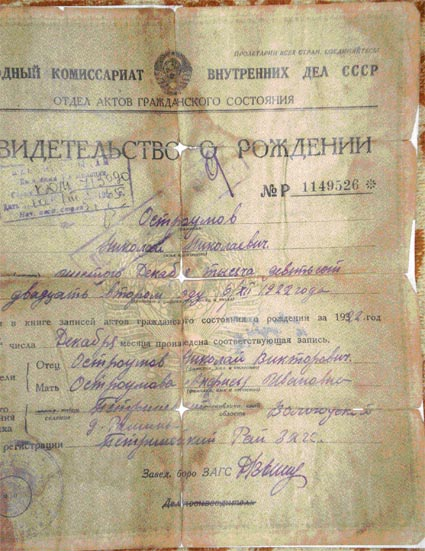 ПРОЛЕТАРИИ ВСЕХ СТРАН, СОЕДИНЯЙТЕСЬ!
ОДНЫЙ КОМИССАРИАТ ВНУТРЕННИХ ДЕЛ СССР
ОТДЕЛ АКТОВ ГРАЖДАНСКОГО СОСТОЯНИЯ
ВИДЕТЕЛЬСТВО О РОЖДЕНИИ
№ Р 1149526 *
Остроумов
Николай Николаевич
шестого Декабря тысяча девятьсот
двадцать втором году 6/XII 1922 года
в книге записей актов гражданского состояния о рождении за 1922 год
числа Декабря месяца произведена соответствующая запись.
Отец Остроумов Николай Викторович
Мать Остроумова Ивановна
Вологодская
области
д.
регистрации Рай Загс.
Завед. бюро ЗАГС
Делопроизводитель